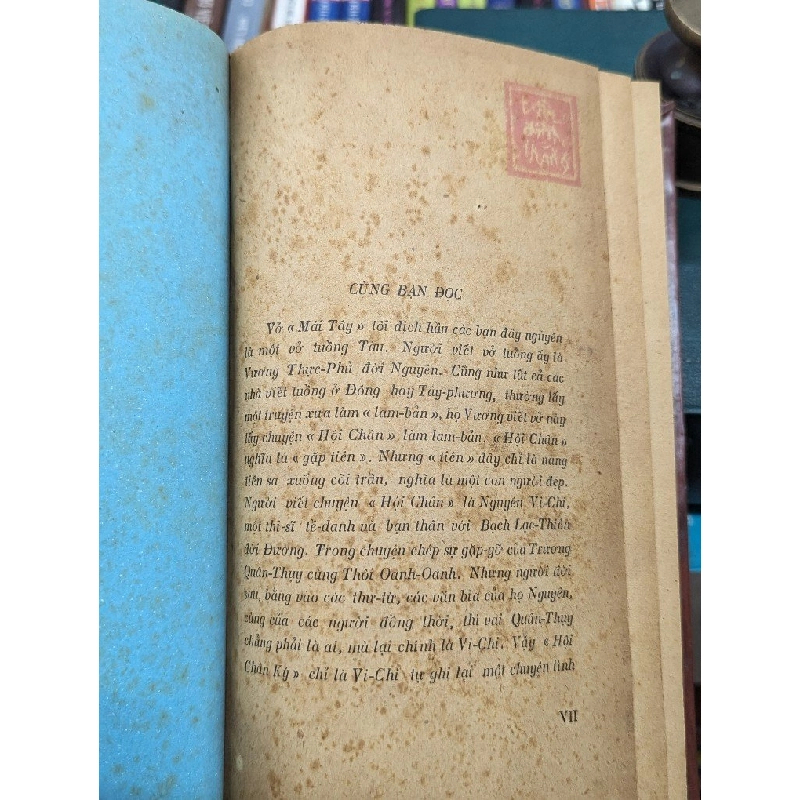 CÙNG BẠN ĐỌC
Vở « Mái Tây » tôi dịch hầu các bạn đây nguyên
là một vở tuồng Tàu. Người viết vở tuồng ấy là
Vương Thực-Phủ đời Nguyên. Cũng như tất cả các
nhà viết tuồng ở Đông hay Tây-phương, thường lấy
một truyện xưa làm « lam-bản », họ Vương viết vở này
lấy chuyện « Hội Chân » làm lam-bản. « Hội Chân »
nghĩa là « gặp tiên ». Nhưng « tiên » đây chỉ là nàng
tiên sa xuống cõi trần, nghĩa là một con người đẹp.
Người viết chuyện « Hội Chân » là Nguyên Vi-Chi,
một thi-sĩ tề-danh và bạn thân với Bạch Lạc-Thiên
đời Đường. Trong chuyện chép sự gặp-gỡ của Trương
Quân-Thụy cùng Thôi Oanh-Oanh. Nhưng người đời
sau, bằng vào các thư-từ, các văn bia của họ Nguyên,
cùng của các người đồng thời, thì vai Quân-Thụy
chẳng phải là ai, mà lại chính là Vi-Chi. Vậy « Hội
Chân Ký » chỉ là Vi-Chi tự ghi lại một chuyện tình
VII